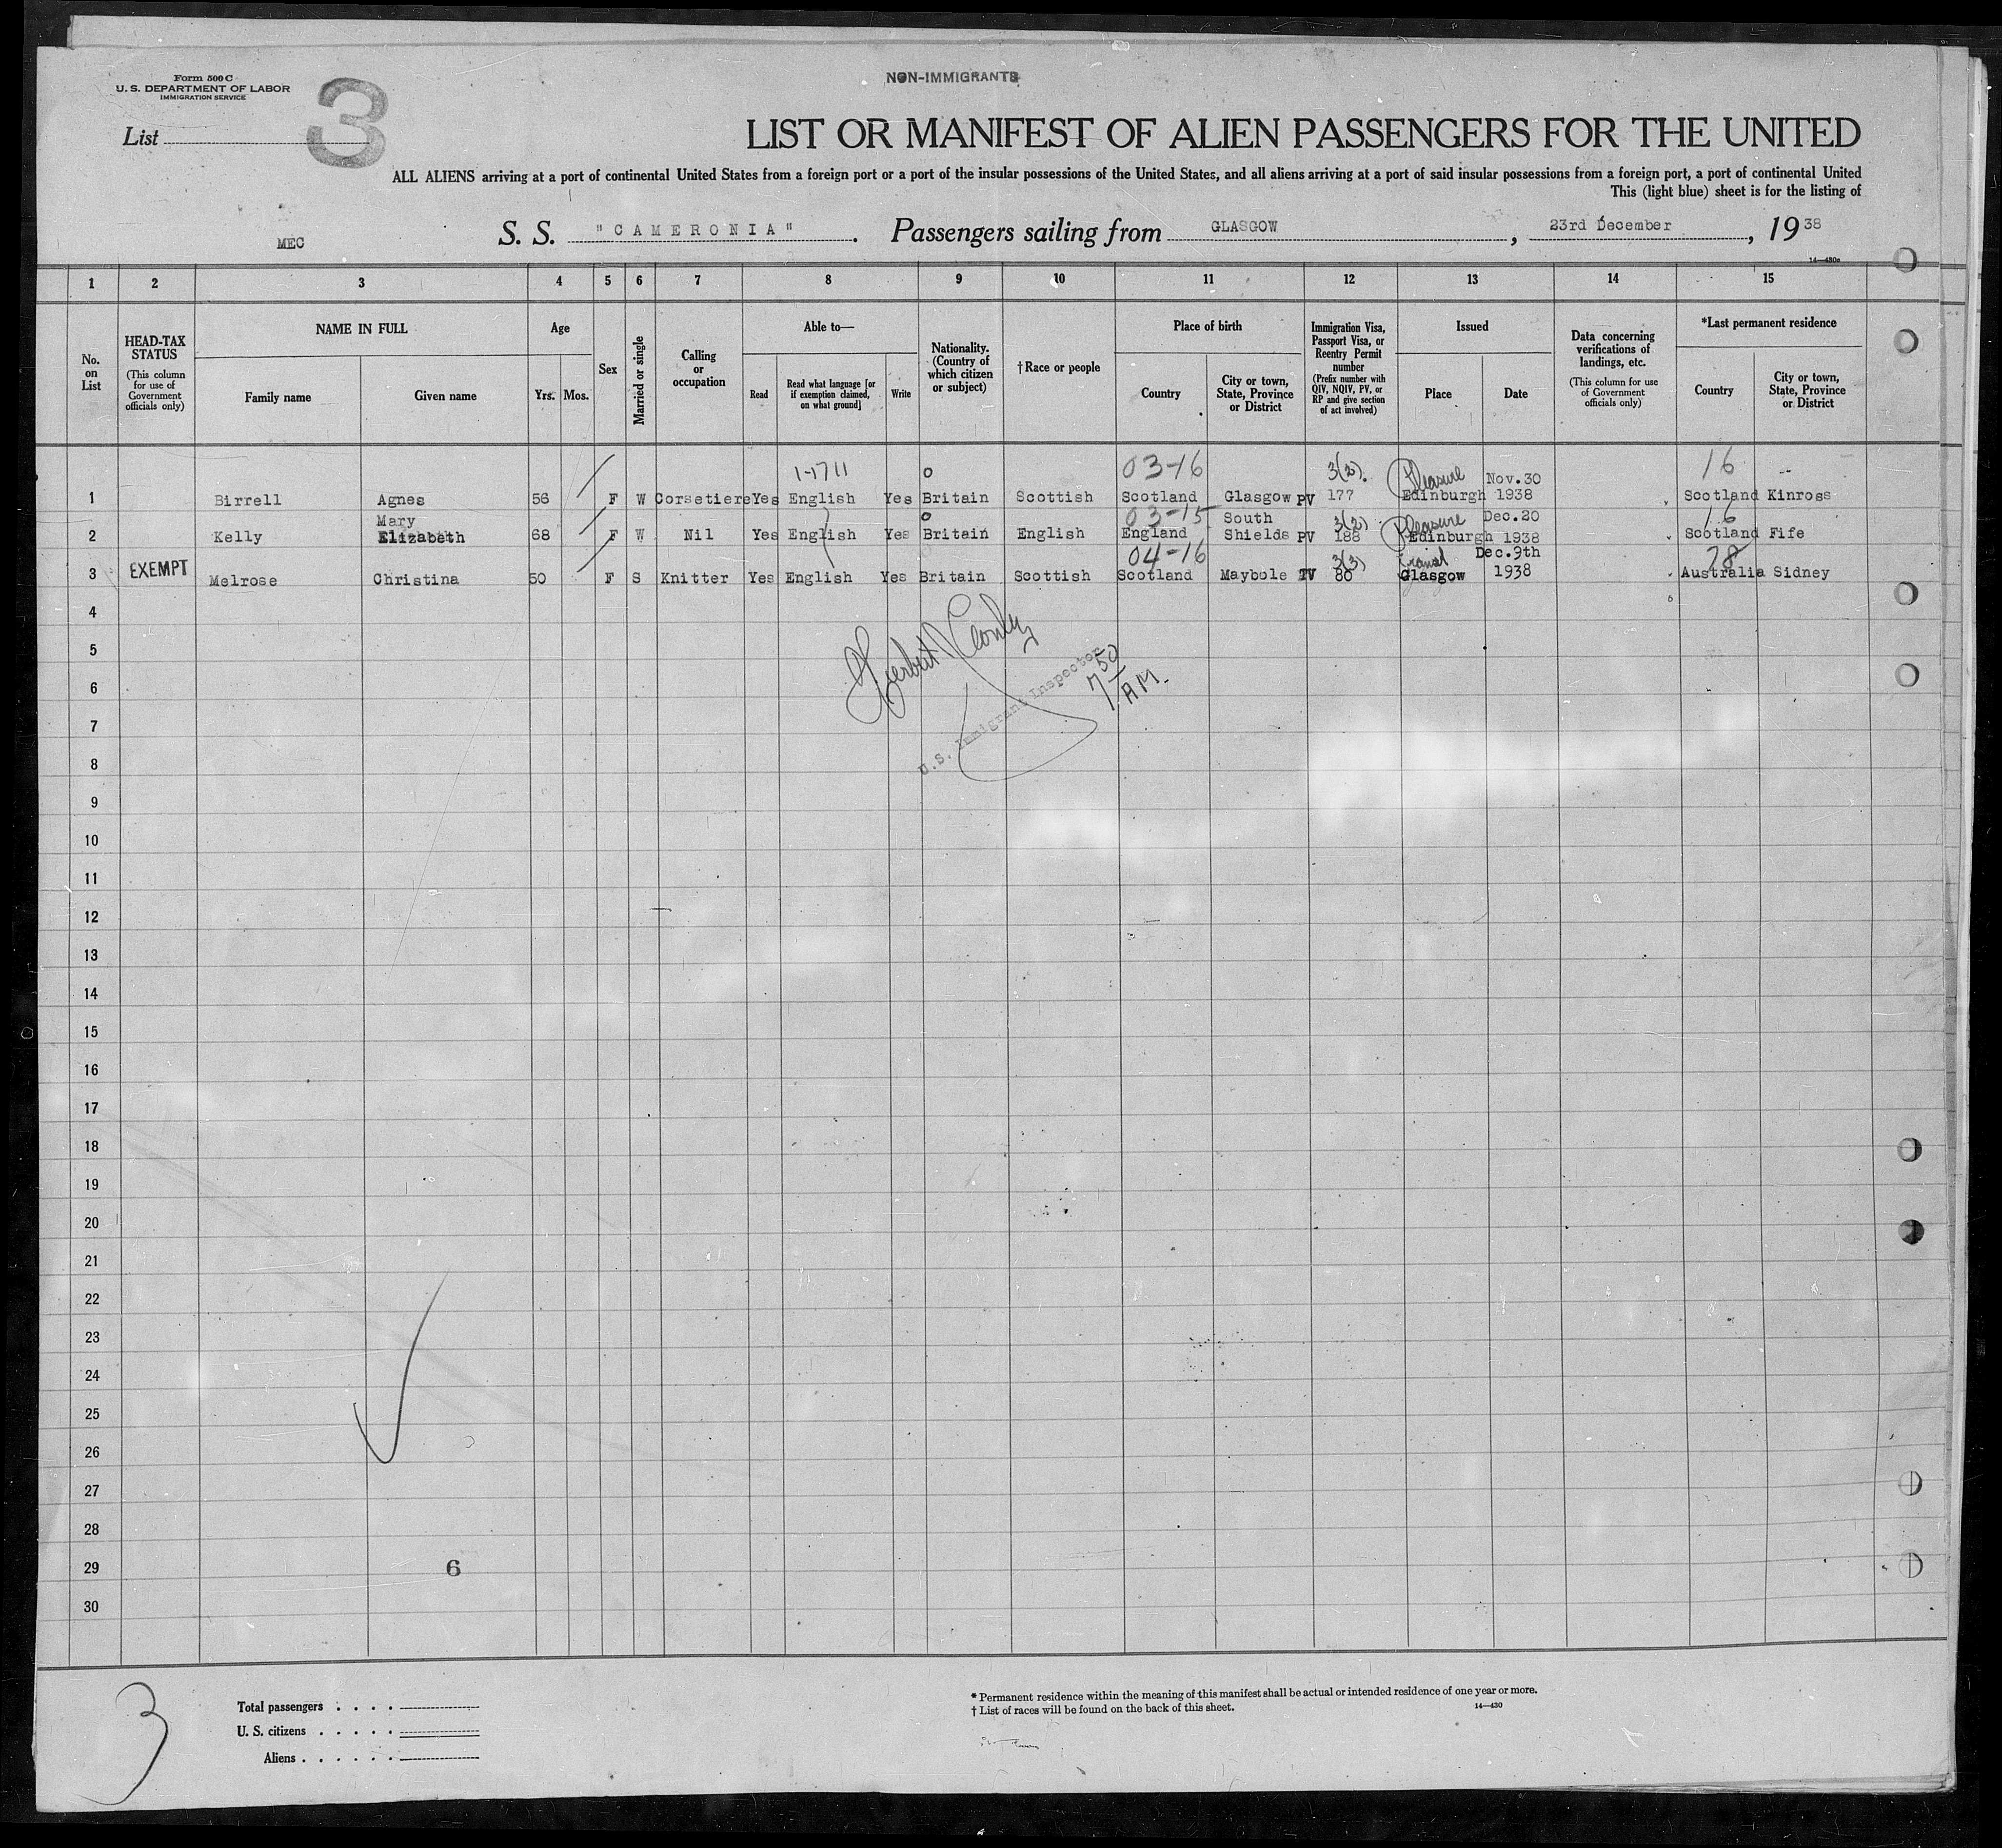 Form 500 C
U. S. DEPARTMENT OF LABOR
IMMIGRATION SERVICE
NON-IMMIGRANTS
List 3
LIST OR MANIFEST OF ALIEN PASSENGERS FOR THE UNITED
ALL ALIENS arriving at a port of continental United States from a foreign port or a port of the insular possessions of the United States, and all aliens arriving at a port of said insular possessions from a foreign port, a port of continental United
This (light blue) sheet is for the listing of
MEC
S. S. "CAMERONIA". Passengers sailing from GLASGOW, 23rd December, 1938
14—430a
1 2 3 4 5 6 7 8 9 10 11 12 13 14 15
No. on List
HEAD-TAX STATUS (This column for use of Government officials only)
NAME IN FULL
Family name Given name
Age
Yrs. Mos.
Sex
Married or single
Calling or occupation
Able to—
Read Read what language [or if exemption claimed, on what ground] Write
Nationality. (Country of which citizen or subject)
†Race or people
Place of birth
Country City or town, State, Province or District
Immigration Visa, Passport Visa, or Reentry Permit number (Prefix number with QIV, NQIV, PV, or RP and give section of act involved)
Issued
Place Date
Data concerning verifications of landings, etc. (This column for use of Government officials only)
*Last permanent residence
Country City or town, State, Province or District
1-1711 0 03-16 3(2). Pleasure Nov.30 16 --
1 Birrell Agnes 56 F W Corsetiere Yes English Yes Britain Scottish Scotland Glasgow PV 177 Edinburgh 1938 Scotland Kinross
Mary 0 03-15 South 3(2) Pleasure Dec.20 16
2 Kelly Elizabeth 68 F W Nil Yes English Yes Britain English England Shields PV 188 Edinburgh 1938 Scotland Fife
04-16 3(3) Transit Dec.9th 78
3 EXEMPT Melrose Christina 50 F S Knitter Yes English Yes Britain Scottish Scotland Maybole TV 80 Glasgow 1938 Australia Sidney
4
5
Herbert
U.S. Immigrant Inspector
7 50 AM.
6
7
8
9
10
11
12
13
14
15
16
17
18
19
20
21
22
23
24
25
26
27
28
29 6
30
3
Total passengers
U. S. citizens
Aliens
* Permanent residence within the meaning of this manifest shall be actual or intended residence of one year or more.
† List of races will be found on the back of this sheet.
14—430